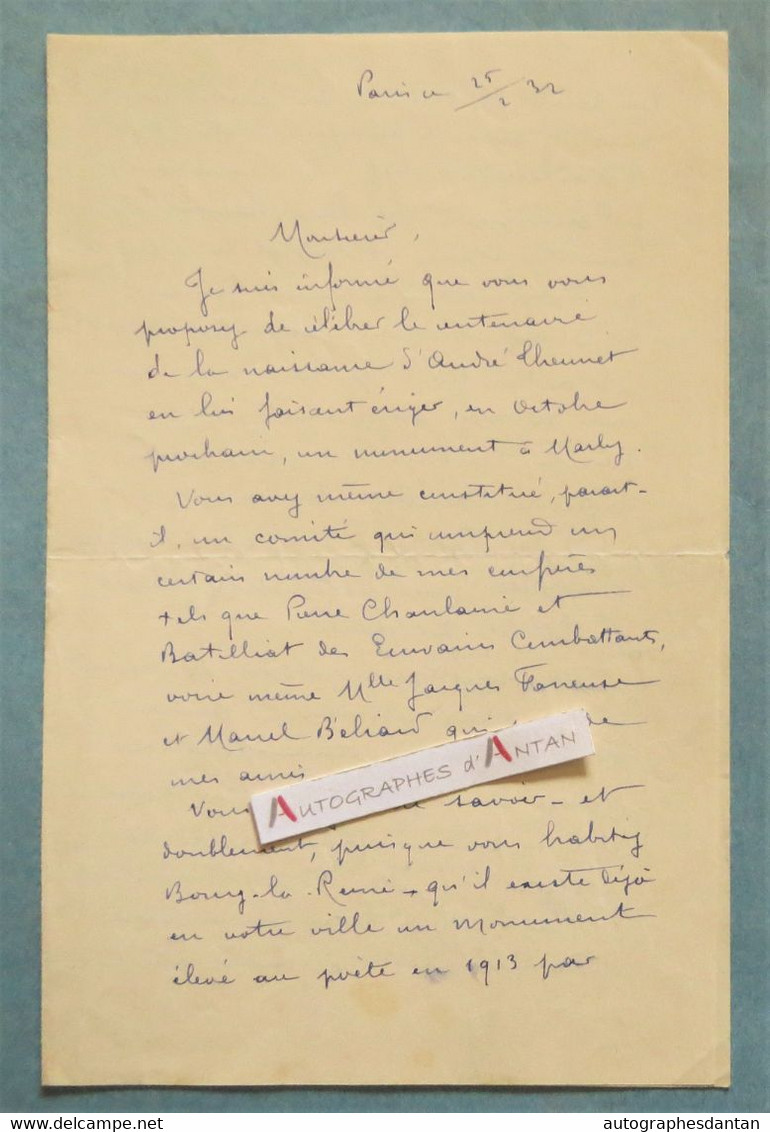 Paris ce 25/2 32
Monsieur,
Je suis informé que vous vous
proposez de célébrer le centenaire
de la naissance d'André Theuriet
en lui faisant ériger, en Octobre
prochain, un monument à Marly.
Vous avez même constitué, parait-
il, un comité qui comprend un
certain nombre de mes confrères
tels que Pierre Chanlaine et
Batilliat des Ecrivains Combattants,
voire même Mlle Jacques Faneuse
et Marcel Béliard qui de
mes amis
AUTOGRAPHES d'ANTAN
Vous savoir - et
doublement, puisque vous habitez
Bourg-la-Reine - qu'il existe déjà
en votre ville un Monument
élevé au poète en 1913 par
delcampe.net
autographesdantan